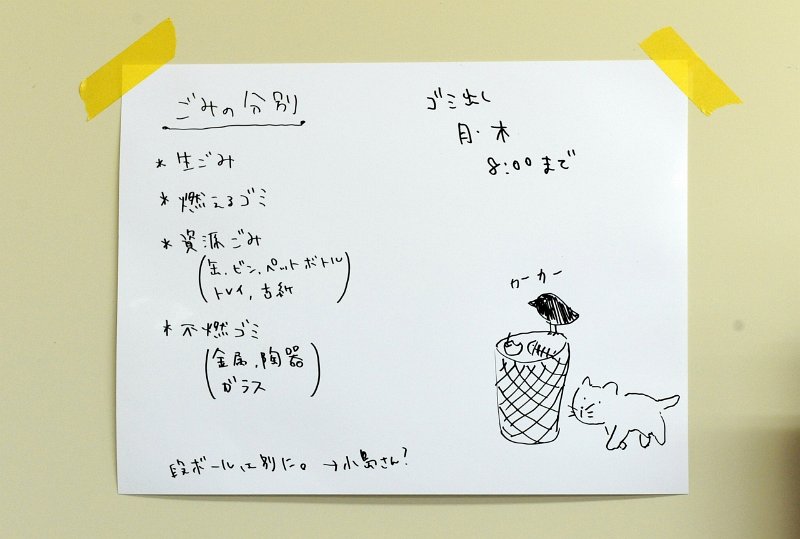 ごみの分別
* 生ごみ
* 燃えるゴミ
* 資源ごみ
(缶、ビン、ペットボトル
トレイ、古紙)
* 不燃ゴミ
(金属、陶器
ガラス)
段ボールは別に。→小島さん?
ゴミ出し
月・木
8:00まで
カーカー